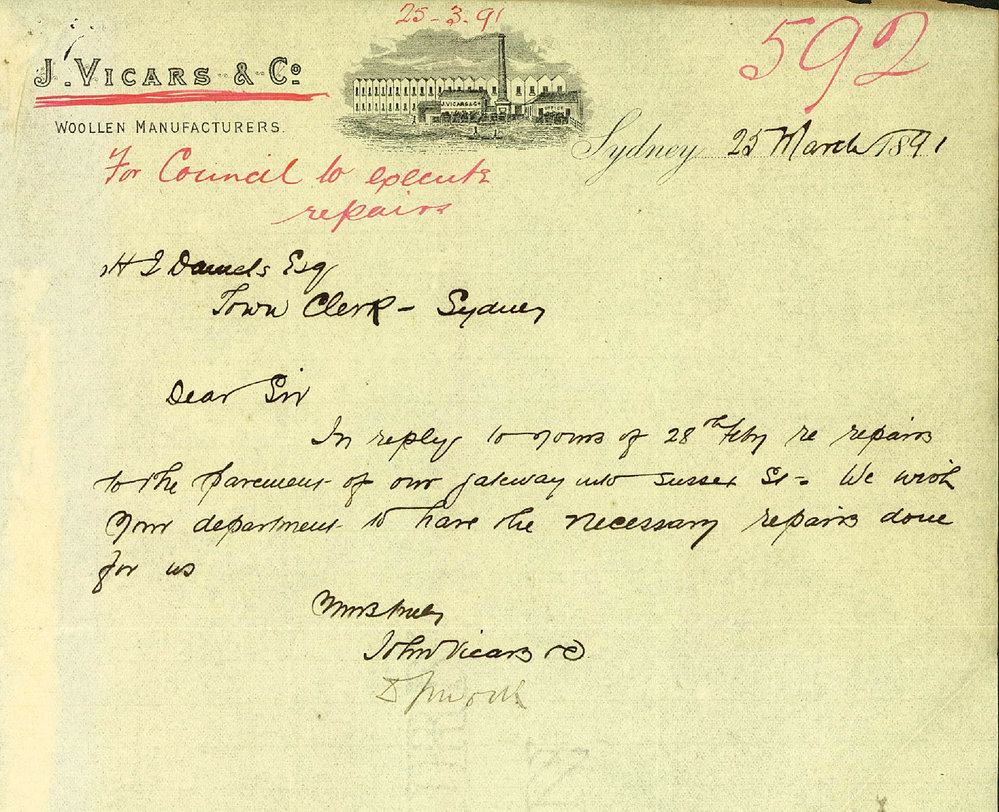 25-3.91
592
J. VICARS & Co.
J.VICARS&Co
WOOLLEN MANUFACTURERS.
Sydney 25 March 1891
For Council to execute
repairs
H J Daniels Esq
Town Clerk - Sydney
Dear Sir
In reply to yours of 28th Feby re repairs
to the pavement of our gateway into Sussex St - We wish
your department to have the necessary repairs done
for us
Yours truly
John Vicars & Co